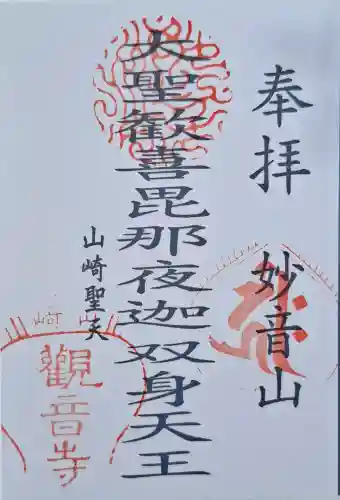 奉拝
妙音山
大聖歓喜毘那夜迦双身天王
山崎聖天
觀音寺